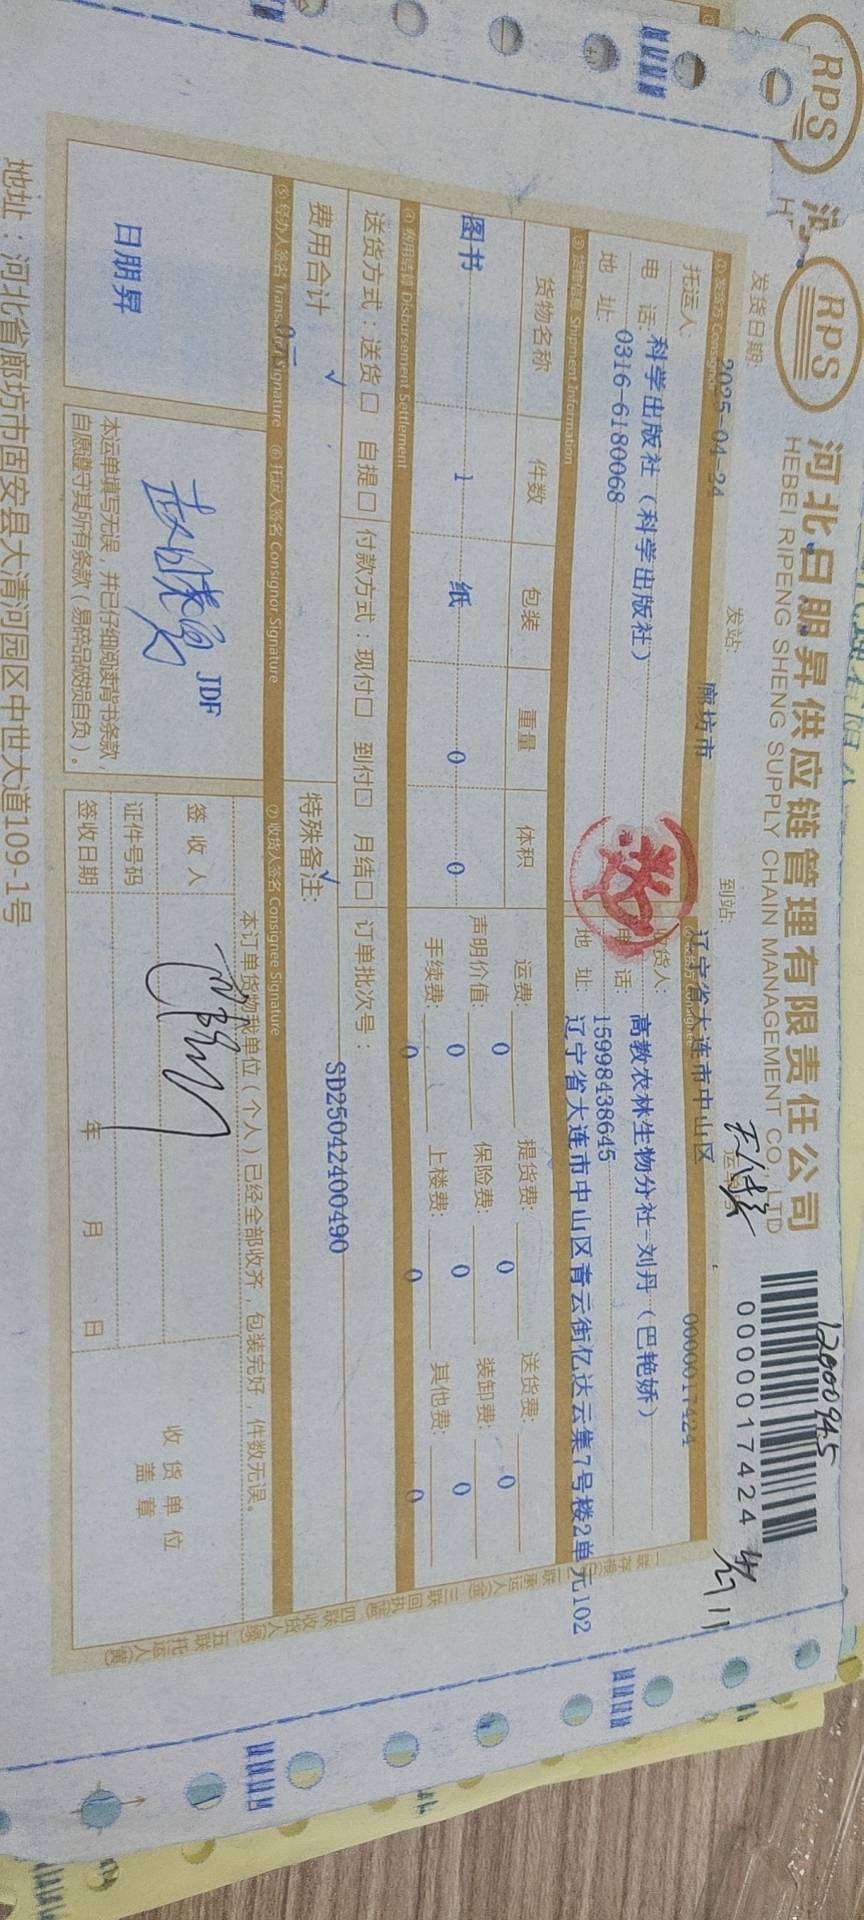 RPS
RPS
河北日朋昇供应链管理有限责任公司
HEBEI RIPENG SHENG SUPPLY CHAIN MANAGEMENT CO.,LTD
12000945
0000017424
发货日期: 2025-04-24 发站: 廊坊市 到站: 辽宁省大连市中山区 0000017424
托运人: 科学出版社（科学出版社）
电 话: 0316-6180068
地 址:
收货人: 高教农林生物分社-刘丹（巴艳娇）
话: 15998438645
地 址: 辽宁省大连市中山区青云街亿达云集7号楼2单元102
送
③ 货物信息 Shipment Information
货物名称 件数 包装 重量 体积
图书 1 纸 0 0
运费: 0 提货费: 0 送货费: 0
声明价值: 0 保险费: 0 装卸费: 0
手续费: 0 上楼费: 0 其他费: 0
④ 费用结算 Disbursement Settlement
送货方式：送货□ 自提□ 付款方式：现付□ 到付□ 月结□ 订单批次号： SD25042400490
✓ ✓
费用合计 0元 特殊备注:
⑤ 经办人签名 Transactor Signature ⑥ 托运人签名 Consignor Signature ⑦ 收货人签名 Consignee Signature
日朋昇
JDF
本运单填写无误，并已仔细阅读背书条款，
自愿遵守其所有条款（易碎品破损自负）。
本订单货物我单位（个人）已经全部收齐，包装完好，件数无误。
签 收 人
证件号码
签收日期 年 月 日
收货单位
盖 章
地址：河北省廊坊市固安县大清河园区中世大道109-1号